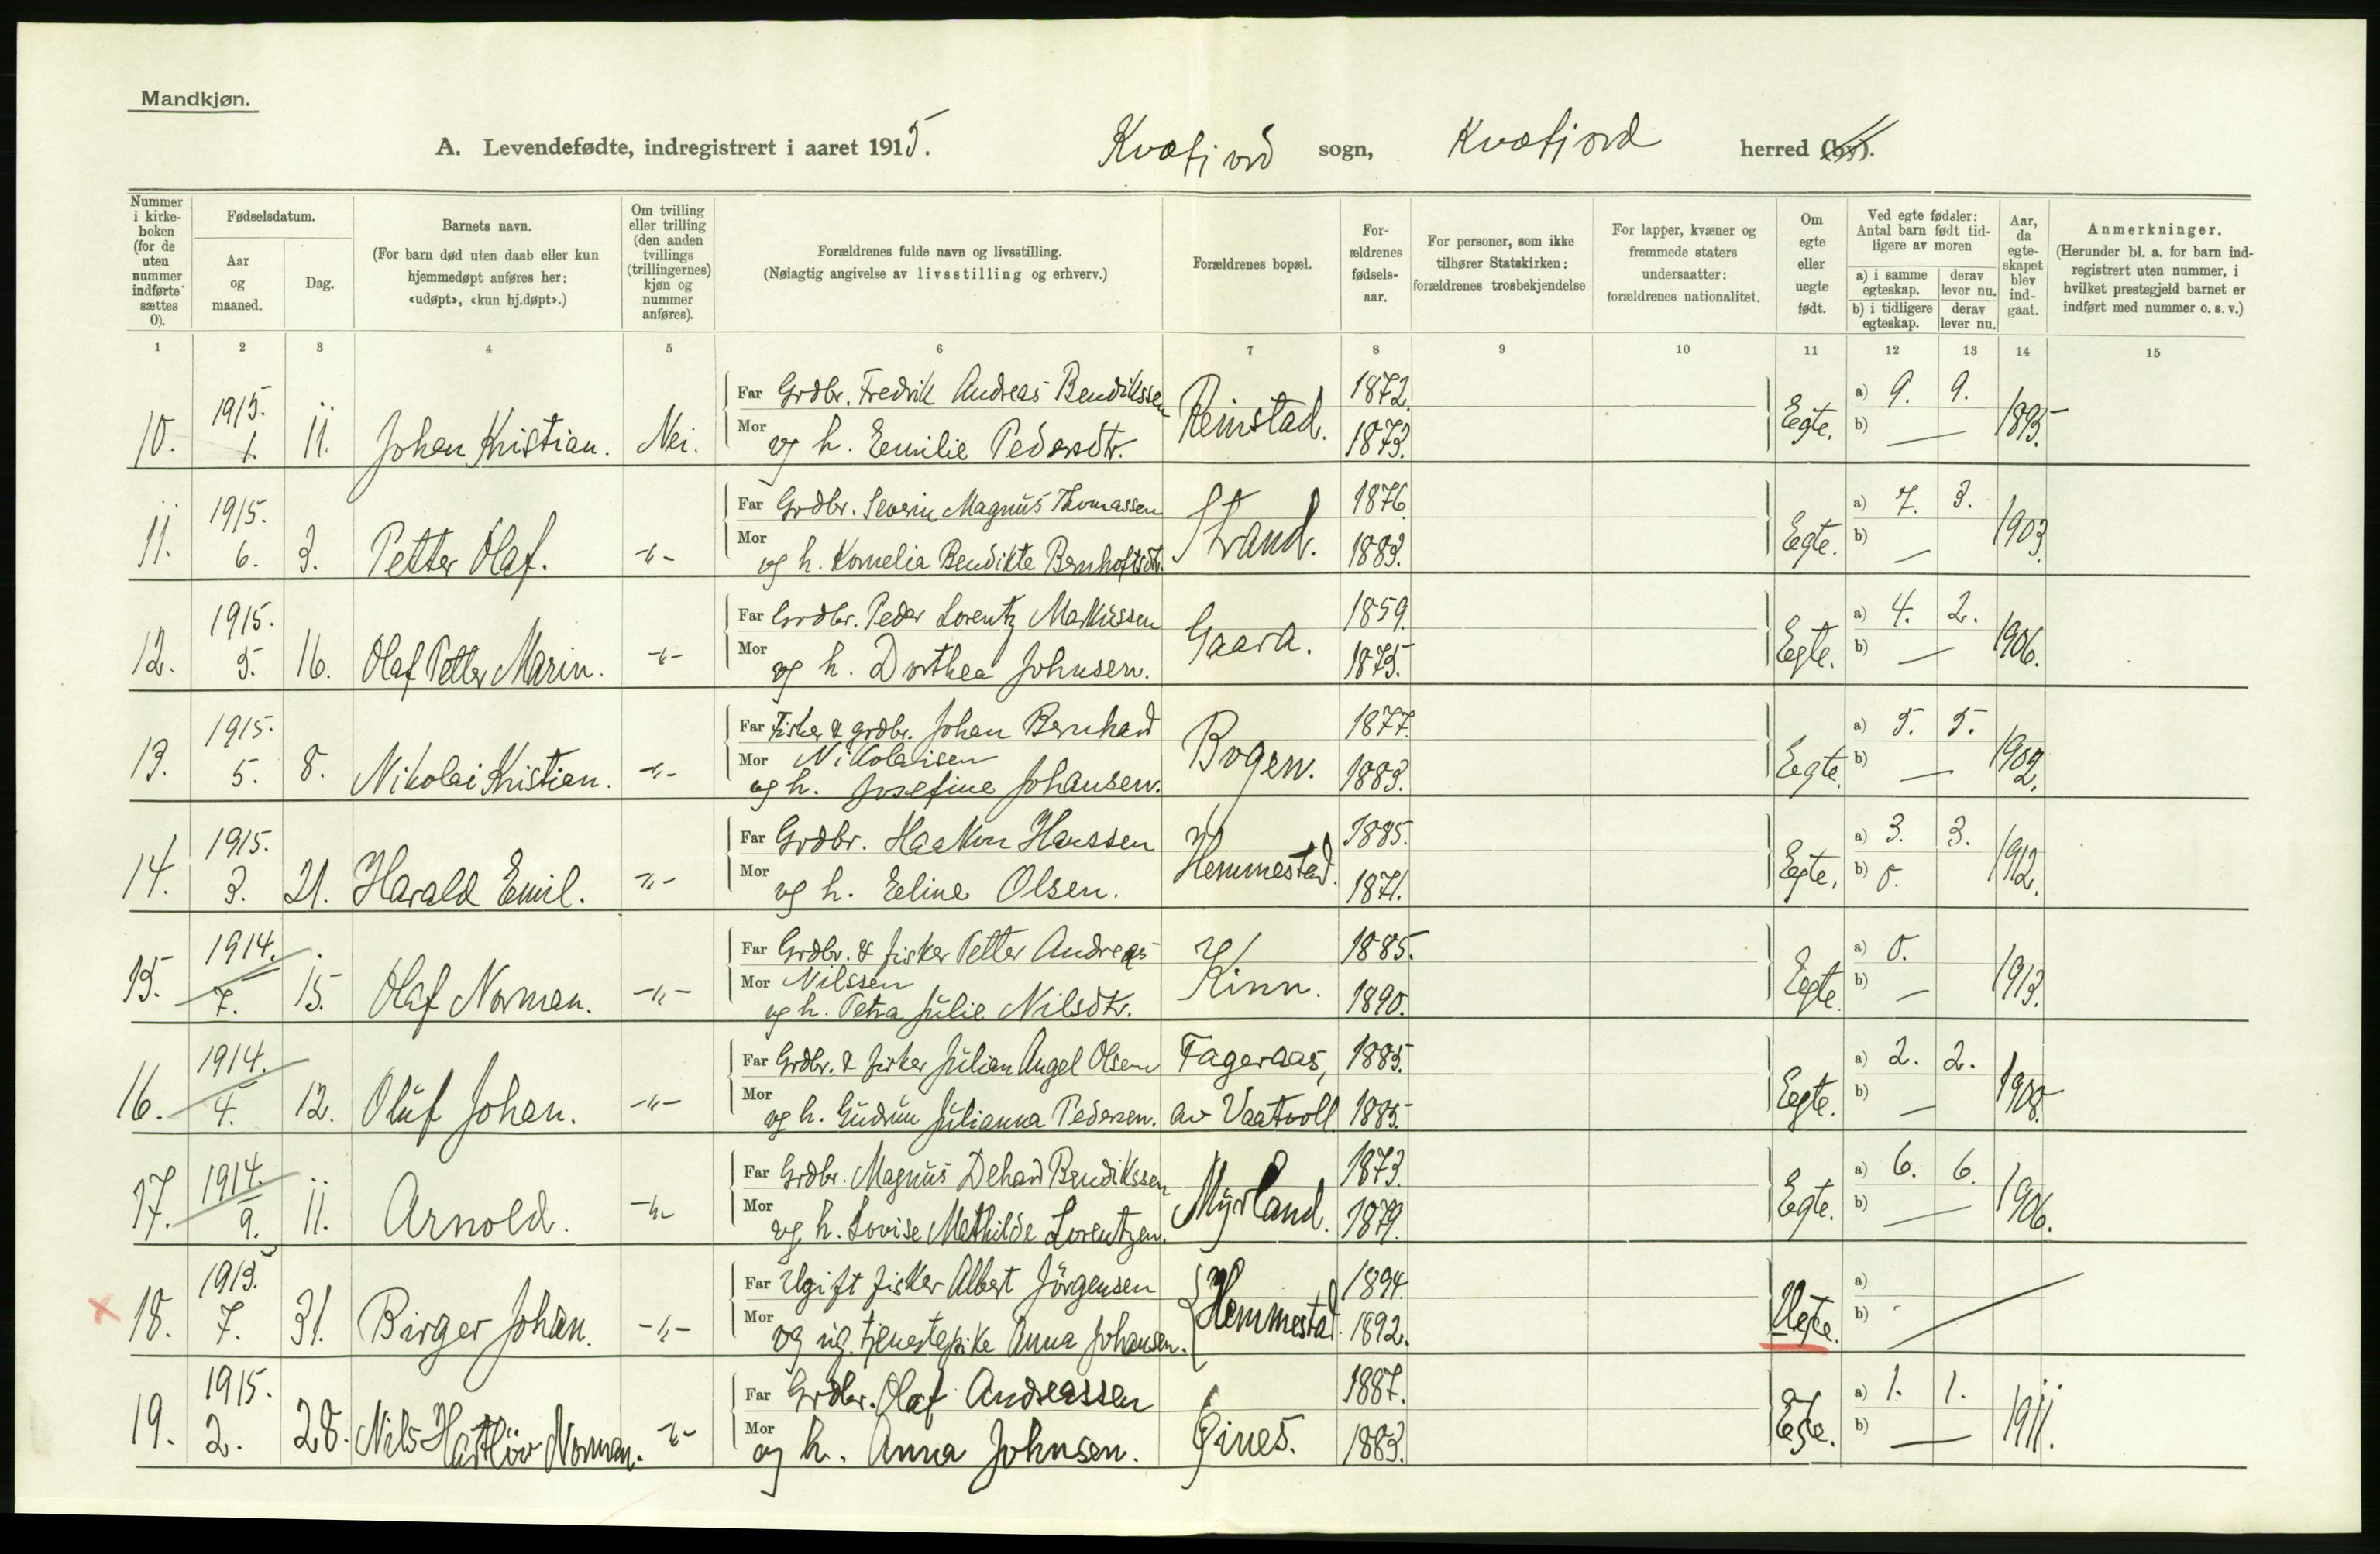 Mandkjøn.
A. Levendefødte, indregistrert i aaret 1915. Kvæfjord sogn, Kvæfjord herred (by).
Nummer i kirke-boken (for de uten nummer indførte sættes 0).
Fødselsdatum.
Aar og maaned.
Dag.
Barnets navn.
(For barn død uten daab eller kun hjemmedøpt anføres her: «udøpt», «kun hj.døpt».)
Om tvilling eller trilling (den anden tvillings (trillingernes) kjøn og nummer anføres).
Forældrenes fulde navn og livsstilling.
(Nøiagtig angivelse av livsstilling og erhverv.)
Forældrenes bopæl.
For-ældrenes fødsels-aar.
For personer, som ikke tilhører Statskirken: forældrenes trosbekjendelse
For lapper, kvæner og fremmede staters undersaatter: forældrenes nationalitet.
Om egte eller uegte født.
Ved egte fødsler: Antal barn født tid-ligere av moren
a) i samme egteskap.
derav lever nu.
b) i tidligere egteskap.
derav lever nu.
Aar, da egte-skapet blev ind-gaat.
Anmerkninger.
(Herunder bl. a. for barn ind-registrert uten nummer, i hvilket prestegjeld barnet er indført med nummer o. s. v.)
1 2 3 4 5 6 7 8 9 10 11 12 13 14 15
Far Grdbr. Fredrik Andreas Bendikssen 1872. a) 9. 9.
10. 1915. 1. 11. Johan Kristian. Nei. Reinstad. Egte. b) — 1895.
Mor og h. Emilie Pedersdtr. 1873.
Far Grdbr. Severin Magnus Thomassen 1876. a) 7. 3.
11. 1915. 6. 3. Petter Olaf. -"- Strand. Egte. b) — 1903.
Mor og h. Kornelia Bendikte Bernhoftsdtr. 1883.
Far Grdbr. Peder Lorentz Markussen 1859. a) 4. 2.
12. 1915. 5. 16. Olaf Petter Marin. -"- Gaara. Egte. b) — 1906.
Mor og h. Dorthea Johnsen. 1875.
Far Fisker & grdbr. Johan Bernhard 1877. a) 5. 5.
13. 1915. 5. 8. Nikolai Kristian. -"- Mor Nikolaisen Bogen. Egte. b) — 1902.
og h. Josefine Johansen. 1883.
Far Grdbr. Haakon Hanssen 1885. a) 3. 3.
14. 1915. 3. 21. Harald Emil. -"- Hemmestad. Egte. b) 0. 1912.
Mor og h. Eeline Olsen. 1871.
Far Grdbr. & fisker Petter Andreas 1885. a) 0.
15. 1914. 7. 15. Olaf Norman. -"- Mor Nilssen Kinn. Egte b) — 1913.
og h. Petra Julie Nilsdtr. 1890.
Far Grdbr. & fisker Julian Angel Olsen Fageraas, 1885. a) 2. 2.
16. 1914. 4. 12. Oluf Johan. -"- Egte. b) — 1908.
Mor og h. Gudrun Julianna Pedersen. av Vaatvoll 1885.
Far Grdbr. Magnus Dehard Bendikssen 1873. a) 6. 6.
17. 1914. 9. 11. Arnold. -"- Myrland. Egte. b) — 1906.
Mor og h. Lovise Mathilde Lorentzen. 1879.
Far Ugift fisker Albert Jörgensen 1894. a)
18. 1915. 7. 31. Birger Johan. -"- Hemmestad. Uegte. b)
Mor og ug. tjenestepike Anna Johansen. 1892.
Far Grdbr. Olaf Andreassen 1887. a) 1. 1.
19. 1915. 2. 28. Nils Norman. -"- Egte. b) — 1911.
Mor og h. Anna Johnsen. 1883.